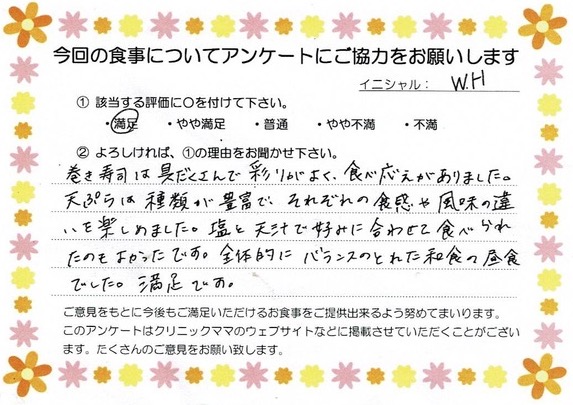 今回の食事についてアンケートにご協力をお願いします
イニシャル： W.H
① 該当する評価に○を付けて下さい。
・満足 ・やや満足 ・普通 ・やや不満 ・不満
② よろしければ、①の理由をお聞かせ下さい。
巻き寿司は具だくさんで彩りがよく、食べ応えがありました。
天ぷらは種類が豊富で、それぞれの食感や風味の違
いを楽しめました。塩と天汁で好みに合わせて食べられ
たのもよかったです。全体的にバランスのとれた和食の昼食
でした。満足です。
ご意見をもとに今後もご満足いただけるお食事をご提供出来るよう努めてまいります。
このアンケートはクリニックママのウェブサイトなどに掲載させていただくことがござい
ます。たくさんのご意見をお願い致します。